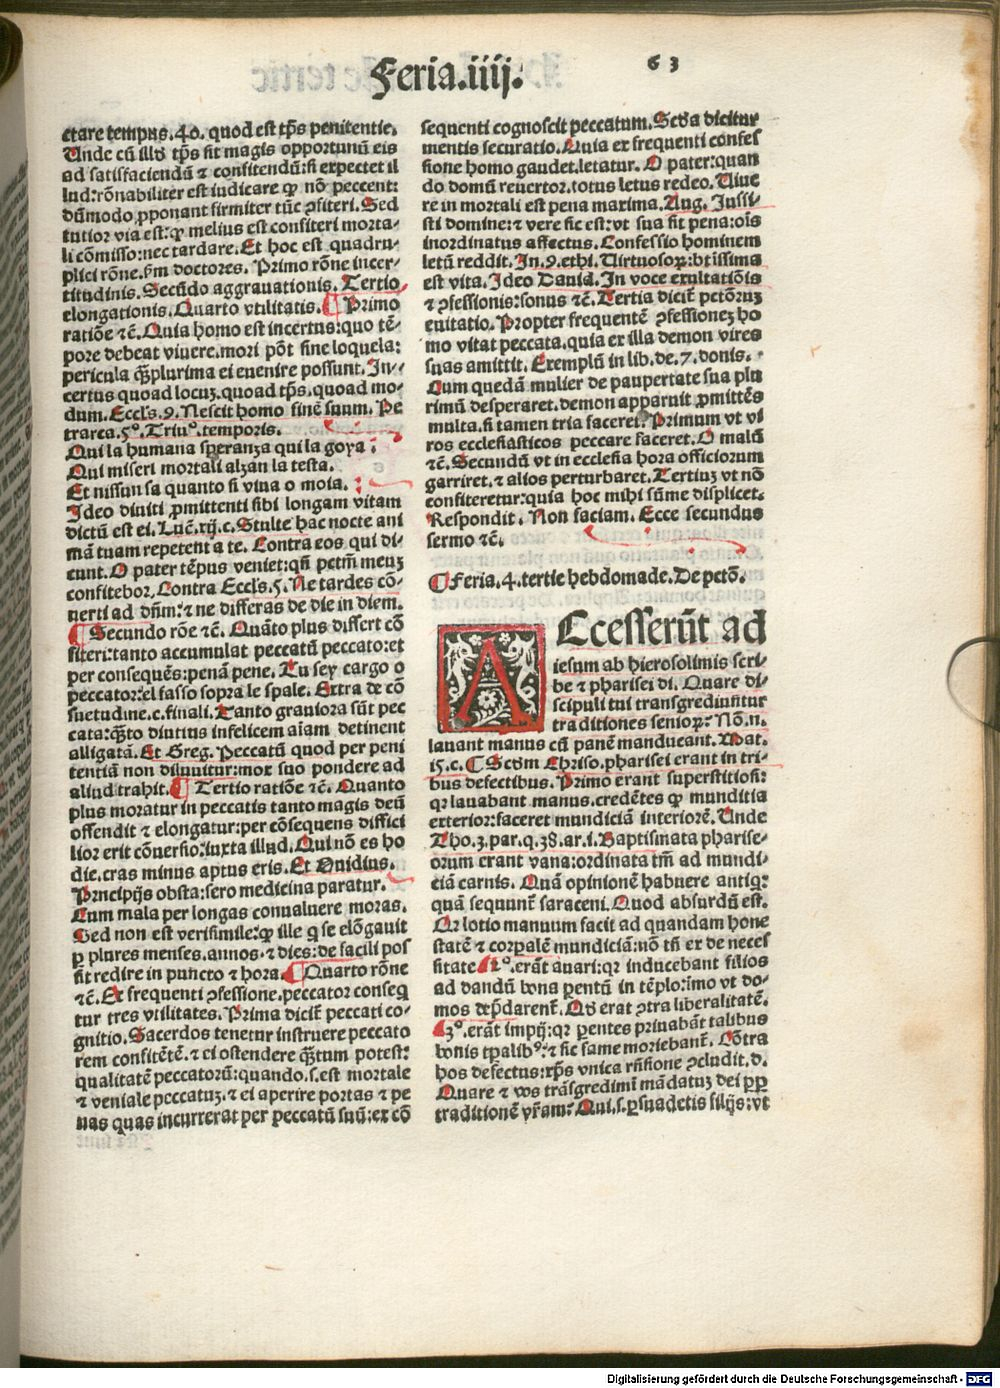 Feria.iiij.
63
ctare tempus.40. quod est tp̄s penitentie.
Unde cū illd tp̄s sit magis opportunū eis
ad satisfaciendū ⁊ confitendū:si expectet il
lud:rōnabiliter est iudicare ꝙ nō peccent:
dūmodo ꝓponant firmiter tūc ꝯfiteri. Sed
tutior via est:ꝙ melius est confiteri morta-
li cōmisso:nec tardare. Et hoc est quadru-
plici rōne.ẜm doctores. Primo rōne incer-
titudinis. Secūdo aggrauationis. Tertio
elongationis. Quarto vtilitatis. ¶ Primo
ratiōe ⁊c̄. Quia homo est incertus:quo tē-
pore debeat viuere.mori pōt sine loquela:
pericula q̄ꝫplurima ei euenire possunt. In-
certus quoad locuꝫ.quoad tp̄s.quoad mo-
dum. Eccls̄.9. Nescit homo finē suum. Pe
trarca.5º. Triuº.temporis.
Qui la humana speranza qui la goya:
Qui miseri mortali alzan la testa.
Et nissun sa quanto si viua o moia.
Ideo diuiti ꝓmittenti sibi longam vitam
dictū est ei. Luc̄.xij.c. Stulte hac nocte ani
mā tuam repetent a te. Contra eos qui di-
cunt. O pater tēpus veniet:qn̄ petm̄ meuꝫ
confitebor. Contra Eccls̄.5. Ne tardes cō-
uerti ad dn̄m:⁊ ne differas de die in diem.
¶ Secundo rōe ⁊c̄. Quāto plus differt cō
fiteri:tanto accumulat peccatū peccato:et
per consequēs:penā pene. Tu sey cargo o
peccator:el fasso sopra le spale. Extra de cō
suetudine.c.finali. Tanto grauiora sūt pec
cata:q̄ꝫto diutius infelicem aīam detinent
alligatā. Et Greg. Peccatū quod per peni
tentiā non diluuitur:mox suo pondere ad
aliud trahit. ¶ Tertio ratiōe ⁊c̄. Quanto
plus moratur in peccatis tanto magis deū
offendit ⁊ elongatur:per cōsequens diffici
lior erit cōuersio:iuxta illud. Qui nō es ho
die.cras minus aptus eris. Et Ouidius.
Prncipijs obsta:sero medicina paratur.
Cum mala per longas conualuere moras.
Sed non est verisimile:ꝙ ille q̇ se elōgauit
ꝑ plures menses.annos.⁊ dies:de facili pos
sit redire in puncto ⁊ hora. ¶ Quarto rōne
⁊c̄. Ex frequenti ꝯfessione.peccator conseq̇
tur tres vtilitates. Prima dicit̄ peccati co-
gnitio. Sacerdos tenetur instruere peccato
rem confitētē.⁊ ei ostendere q̄ꝫtum potest:
qualitatē peccatorū:quando.s.est mortale
⁊ veniale peccatuꝫ.⁊ ei aperire portas ⁊ pe
nas quas incurrerat per peccatū suū:ex cō
sequenti cognoscit peccatum. Scd̄a dicitur
mentis securatio. Quia ex frequenti confes
sione homo gaudet.letatur. O pater:quan
do domū reuertor.totus letus redeo. Viue
re in mortali est pena maxima. Aug. Iussi-
sti domine:⁊ vere sic est:vt sua sit pena:oīs
inordinatus affectus. Confessio hominem
letū reddit. In.9.ethi. Virtuosoꝝ:btīssima
est vita. Ideo Dauid. In voce exultatiōis
⁊ ꝯfessionis:sonus ⁊c̄. Tertia dicit̄ petōruꝫ
euitatio. Propter frequentē ꝯfessioneꝫ ho
mo vitat peccata.quia ex illa demon vires
suas amittit. Exemplū in lib.de.7.donis.
Cum quedā mulier de paupertate sua plu
rimū desperaret.demon apparuit ꝓmittēs
multa.si tamen tria faceret. Primum vt vi
ros ecclesiasticos peccare faceret. O malū
⁊c̄. Secundū vt in ecclesia hora officiorum
garriret.⁊ alios perturbaret. Tertiuꝫ vt nō
confiteretur:quia hoc mihi sūme displicet.
Respondit. Non faciam. Ecce secundus
sermo ⁊c̄.
¶ Feria.4.tertie hebdomade. De petō.
Accesserūt ad
iesum ab hierosolimis scri-
be ⁊ pharisei di. Quare di-
scipuli tui transgrediuntur
traditiones senioꝝ: Nō.n.
lauant manus cū panē manducant. Mat.
15.c. ¶ Scd̄m Chriso.pharisei erant in tri-
bus defectibus. Primo erant superstitiosi:
qꝛ lauabant manus.credētes ꝙ munditia
exterior:faceret mundiciā interiorē. Unde
Tho.3.par.q.38.ar.i. Baptismata pharise-
orum erant vana:ordinata tm̄ ad mundi-
ciā carnis. Quā opinionē habuere antiq̇:
quā sequunt̄ saraceni. Quod absurdū est.
Qꝛ lotio manuum facit ad quandam hone
statē ⁊ corpalē mundiciā:nō tn̄ ex de neces
sitate ¶ 2º.erāt auari:qꝛ inducebant filios
ad dandū bona parentū in tēplo:imo vt do-
mos dep̄darent̄. Qd̄ erat ꝯtra liberalitatē.
¶ 3º.erāt impij:qꝛ parentes priuabāt talibus
bonis tꝑalibꝰ:⁊ sic fame moriebant̄. Cōtra
hos defectus:xp̄s vnica rn̄sione ꝯcludit.d.
Quare ⁊ vos trāsgredimī mādatuꝫ dei ꝓpꝑ
traditionē vr̄am: Qui.s.ꝑsuadetis filijs:vt
Digitalisierung gefördert durch die Deutsche Forschungsgemeinschaft - DFG